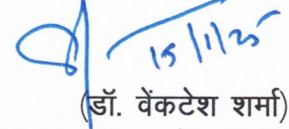 15/1/25
(डॉ. वेंकटेश शर्मा)